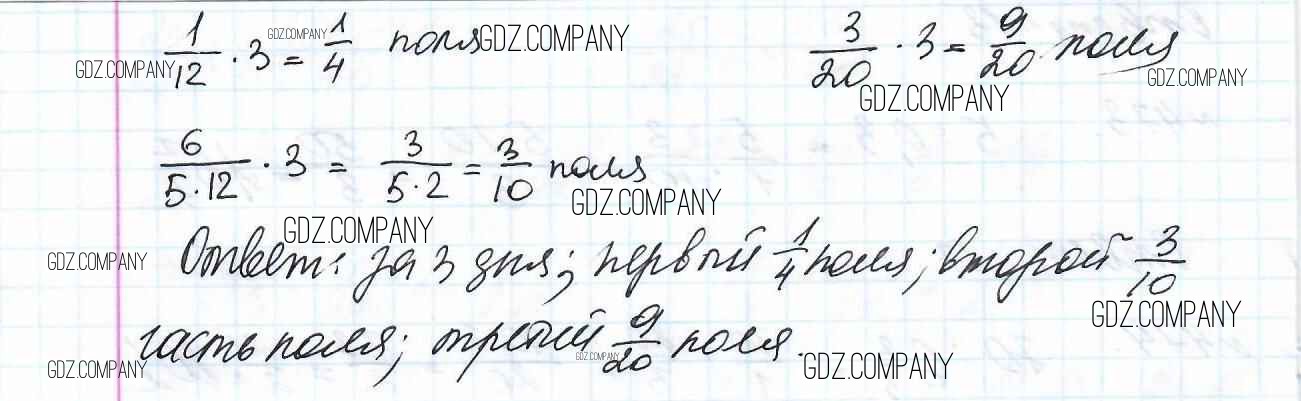 1/12 · 3 = 1/4 поля 3/20 · 3 = 9/20 поля
6/(5·12) · 3 = 3/(5·2) = 3/10 поля
Ответ: за 3 дня; первый 1/4 поля; второй 3/10
часть поля; третий 9/20 поля.
GDZ.COMPANY
GDZ.COMPANY
GDZ.COMPANY
GDZ.COMPANY
GDZ.COMPANY
GDZ.COMPANY
GDZ.COMPANY
GDZ.COMPANY
GDZ.COMPANY
GDZ.COMPANY
GDZ.COMPANY
GDZ.COMPANY